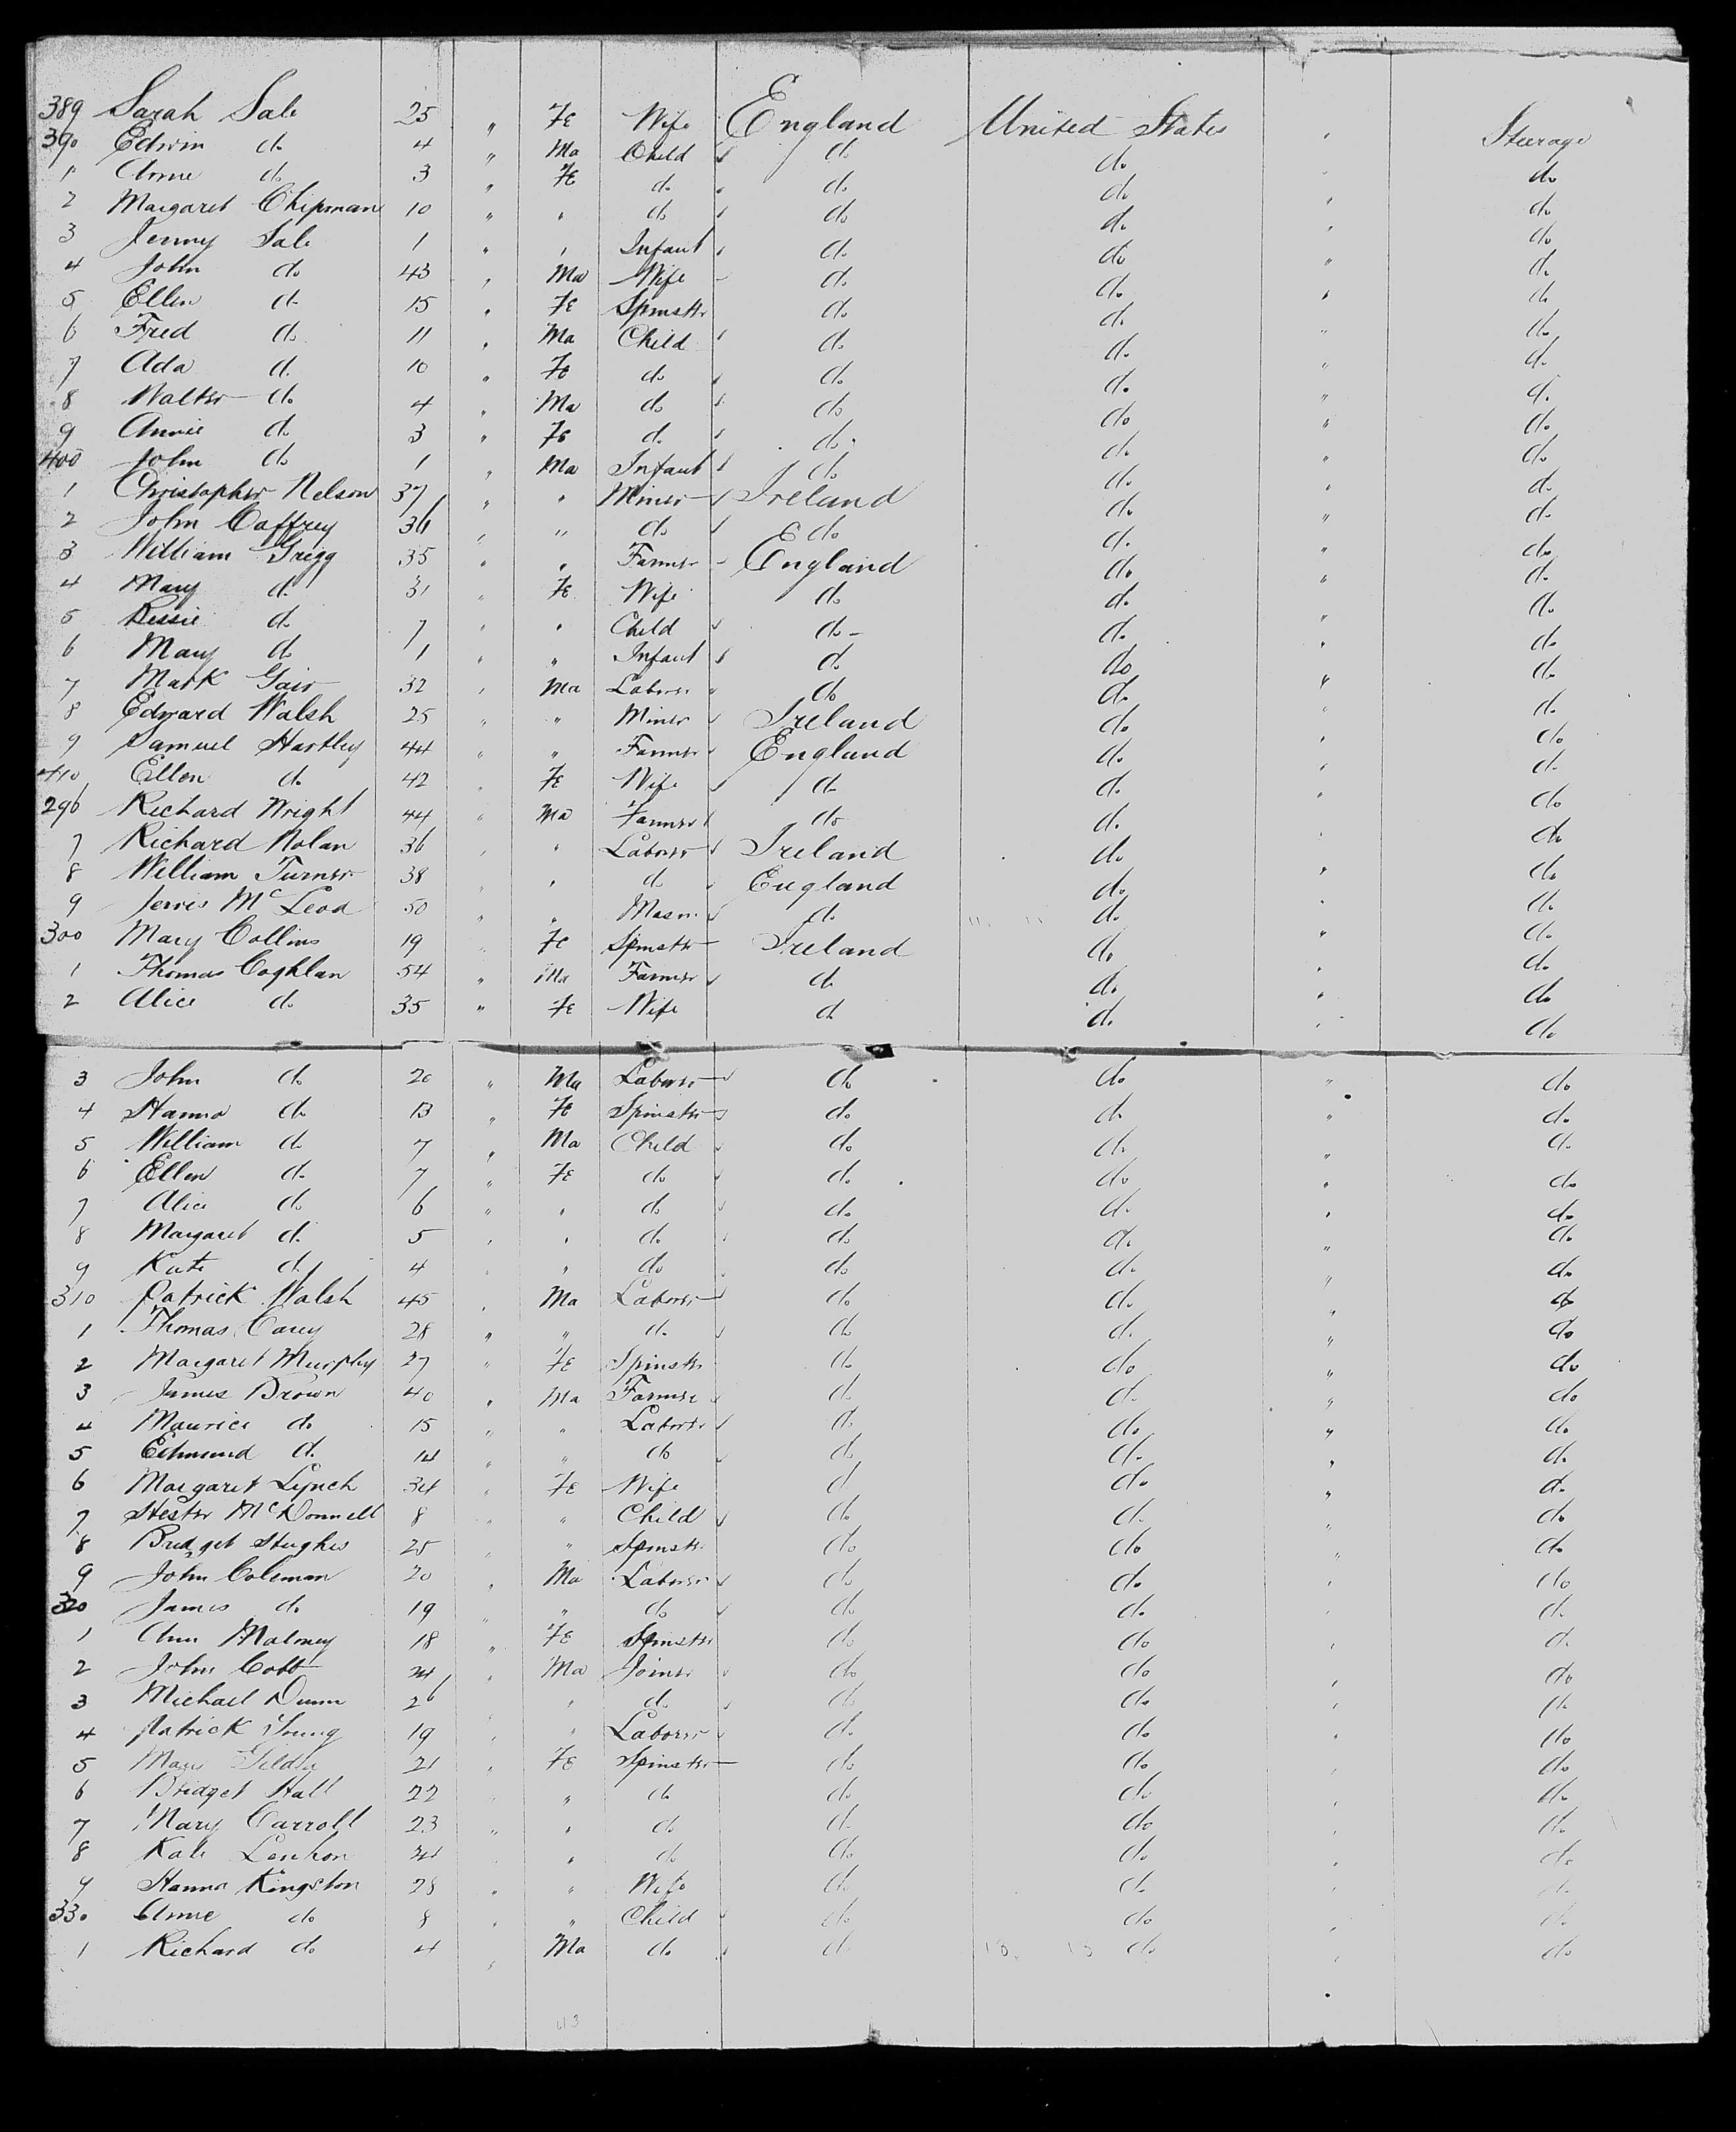 389 Sarah Sale 25 " Fe Wife England United States " Steerage
390 Edwin do 4 " Ma Child do do " do
1 Anne do 3 " Fe do do do " do
2 Margaret Chipman 10 " " do do do " do
3 Jenny Sale 1 " " Infant do do " do
4 John do 43 " Ma Wife do do " do
5 Ellen do 15 " Fe Spinster do do " do
6 Fred do 11 " Ma Child do do " do
7 Ada do 10 " Fe do do do " do
8 Walter do 4 " Ma do do do " do
9 Annie do 3 " Fe do do do " do
400 John do 1 " Ma Infant do do " do
1 Christopher Nelson 37 " " Miner Ireland do " do
2 John Caffrey 36 " " do E do do " do
3 William Grigg 35 " " Farmer England do " do
4 Mary do 31 " Fe Wife do do " do
5 Bessie do 7 " " Child do do " do
6 Mary do 1 " " Infant do do " do
7 Mark Gair 32 " Ma Laborer do do " do
8 Edward Walsh 25 " " Miner Ireland do " do
9 Samuel Hartley 44 " " Farmer England do " do
410 Ellen do 42 " Fe Wife do do " do
296 Richard Wright 44 " Ma Farmer do do " do
7 Richard Nolan 36 " " Laborer Ireland do " do
8 William Turner 38 " " do England do " do
9 Jerris McLeod 50 " " Mason do do " do
300 Mary Collins 19 " Fe Spinster Ireland do " do
1 Thomas Coghlan 54 " Ma Farmer do do " do
2 Alice do 35 " Fe Wife do do " do
3 John do 20 " Ma Laborer do do " do
4 Hanna do 13 " Fe Spinster do do " do
5 William do 7 " Ma Child do do " do
6 Ellen do 7 " Fe do do do " do
7 Alice do 6 " " do do do " do
8 Margaret do 5 " " do do do " do
9 Kate do 4 " " do do do " do
310 Patrick Walsh 45 " Ma Laborer do do " do
1 Thomas Carey 28 " " do do do " do
2 Margaret Murphy 27 " Fe Spinster do do " do
3 James Brown 40 " Ma Farmer do do " do
4 Maurice do 15 " " Laborer do do " do
5 Edmund do 14 " " do do do " do
6 Margaret Lynch 34 " Fe Wife do do " do
7 Hester McDonnell 8 " " Child do do " do
8 Bridget Hughes 25 " " Spinster do do " do
9 John Coleman 20 " Ma Laborer do do " do
320 James do 19 " " do do do " do
1 Ann Maloney 18 " Fe Spinster do do " do
2 John Cobb 24 " Ma Joiner do do " do
3 Michael Dunn 26 " " do do do " do
4 Patrick Young 19 " " Laborer do do " do
5 Mary 21 " Fe Spinster do do " do
6 Bridget Hall 22 " " do do do " do
7 Mary Carroll 23 " " do do do " do
8 Kate Lenhon 24 " " do do do " do
9 Hanna Kingston 28 " " Wife do do " do
330 Anne do 8 " " Child do do " do
1 Richard do 4 " Ma do do do " do